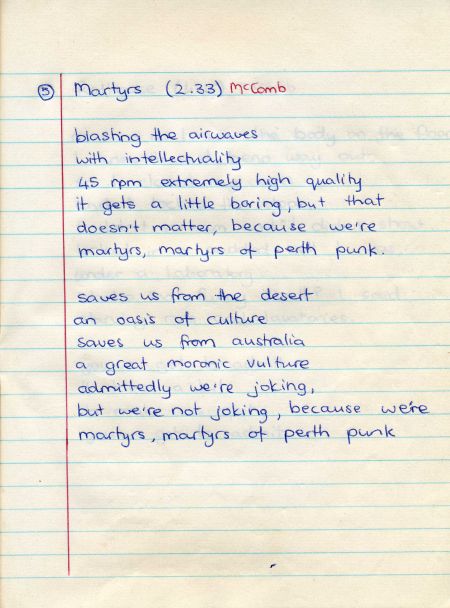 5 Martyrs (2.33) McComb
blasting the airwaves
with intellectuality
45 rpm extremely high quality
it gets a little boring, but that
doesn't matter, because we're
martyrs, martyrs of perth punk.
saves us from the desert
an oasis of culture
saves us from australia
a great moronic vulture
admittedly we're joking,
but we're not joking, because we're
martyrs, martyrs of perth punk